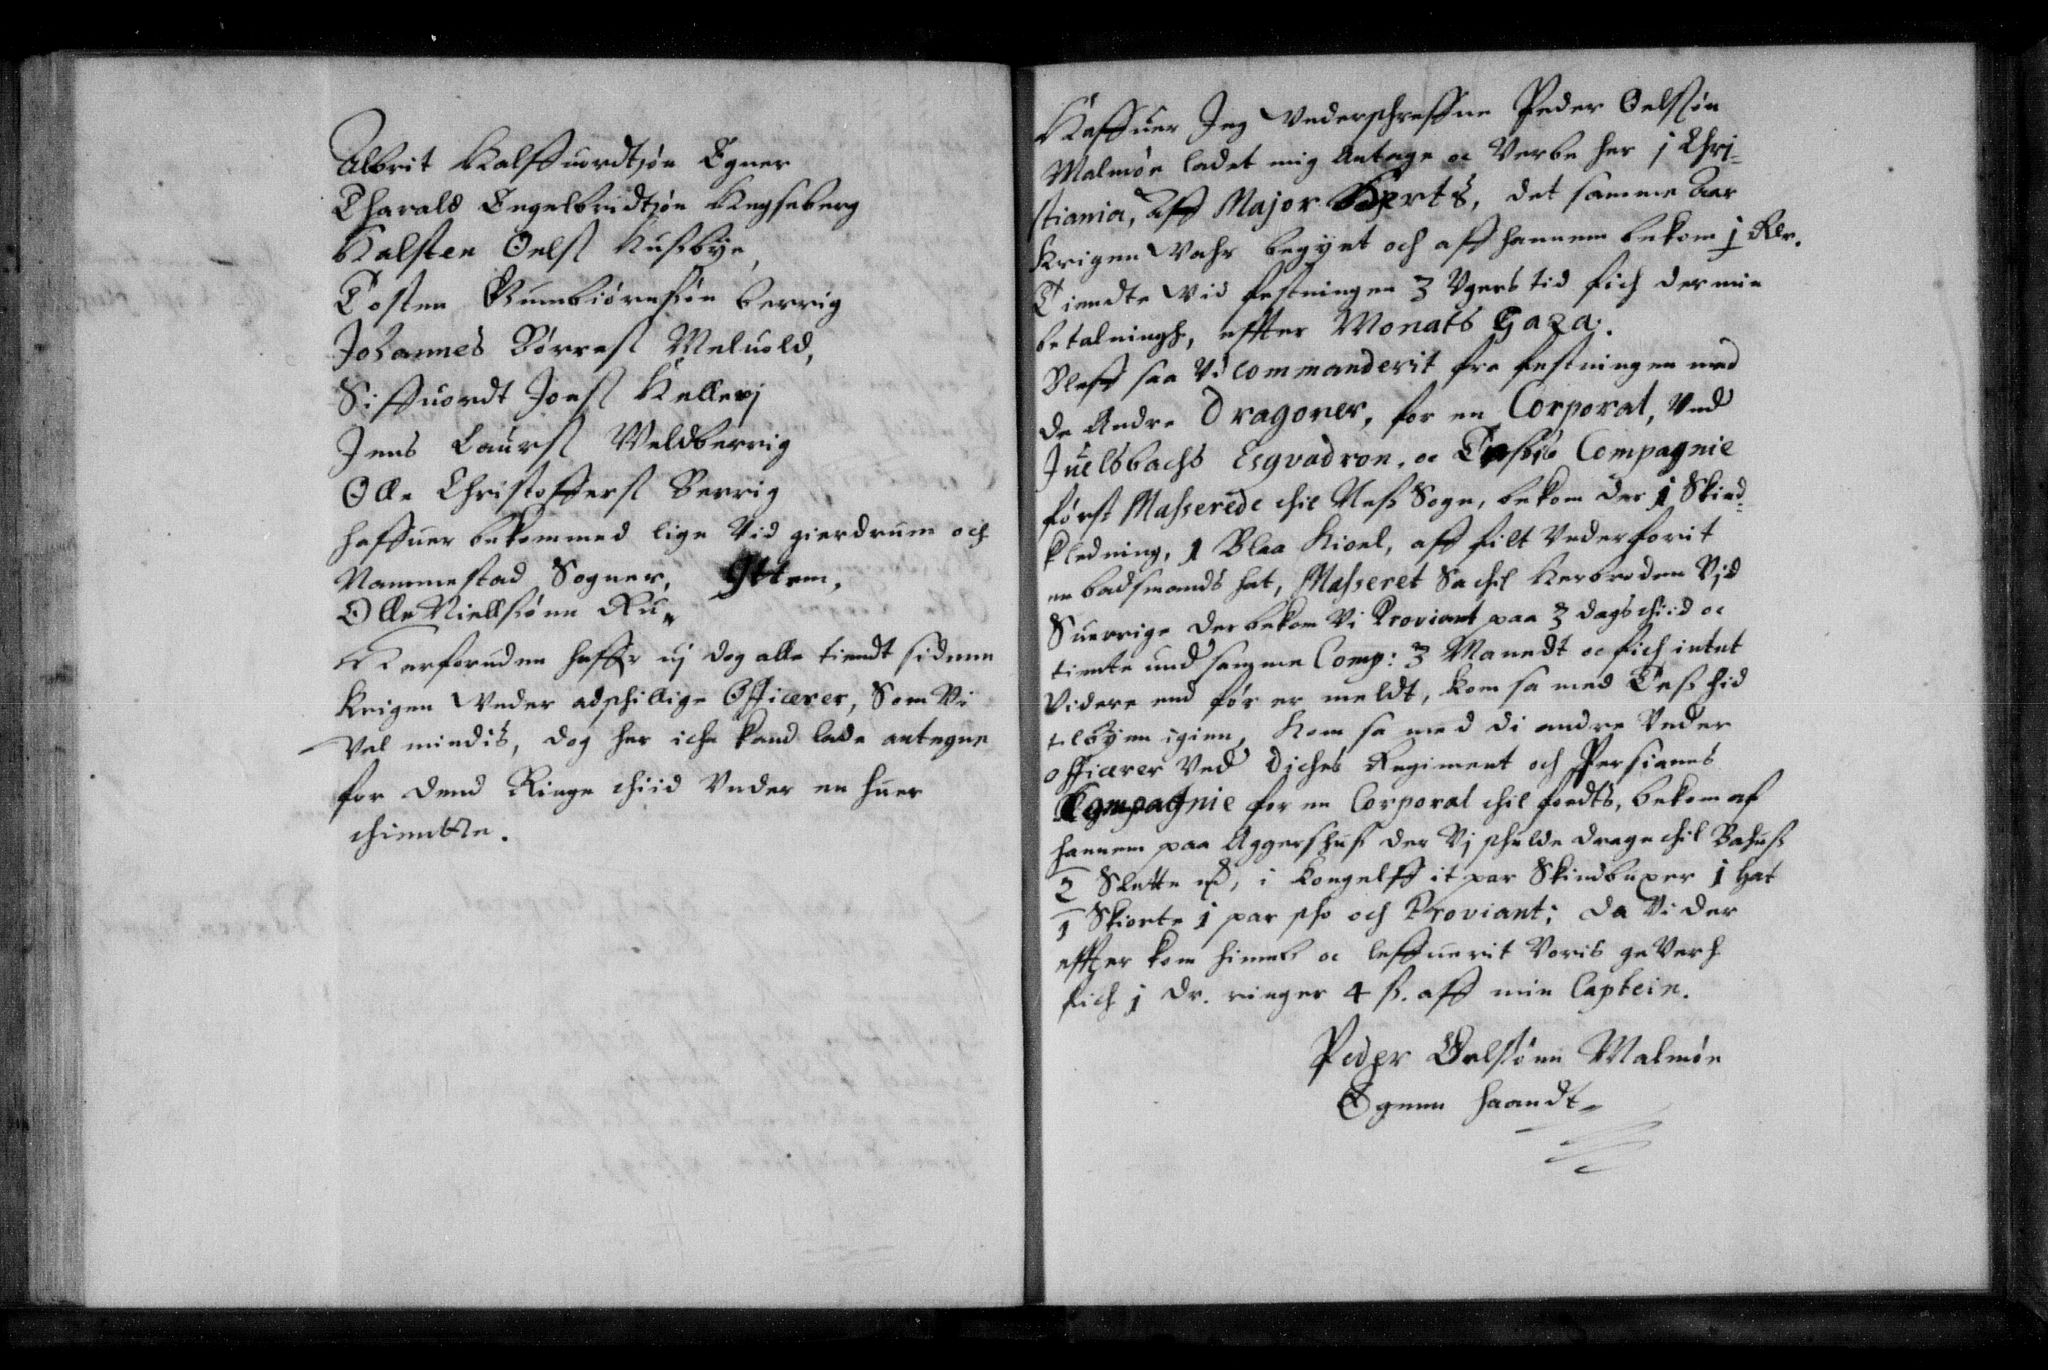 Albrit Halffuordtsøn Egner
Tharald Engelbridtsøn Kegseberg
Halsten Oelss Husbye,
Tosten Gunbiørnsøn berrig
Johannes Børress Meluold,
Siffuordt Joess Kellerj
Jens Laurss Weldberrig
Olle Christofferss Berrig
haffuer bekommed lige Vid gierdrum och
Nannestad Sogner, Ittem,
Olle Niellssønn Ru„
Herforuden haffr vj dog alle tiendt siden
Krigen Vnder adschillige Officerer, Som Vi
Vel mindis, dog her iche kand lade antegne
for dend Ringe chiid Vnder en huer
chiente.
Haffuer Jeg Vnderschreffne Peder Oelsøn
Malmøe ladet mig Antage oc Verbe her j Chri-
stiania, Aff Major, det samme Aar
Krigen Vahr begynt och aff hannem bekom j Rlr.
Tiendte Vid festningen 3 Vgers tid fich der min
betalningh, effter Monats Gaza.
Bleff saa Vdcommanderit fra festningen med
de Andre Dragoner, for en Corporal, Vnd
Juelsbachs Esqvadron, oc Compagnie
først Masserede chil Ness Sogn, bekom der 1 Skind-
kledning, 1 Blaa Kioel, aff filt Vnderforit
en badsmands hat, Masseret Sa chil Kerbroden Vid
Suerrige der bekom Vi Proviant paa 3 dags chiid oc
tiente und samme Comp: 3 Manedt oc fich intet
Videre end før er meldt, kom sa med Tess hid
tilbyen igien, Kom sa med di andre Vnder
officerer Ved Diches Regiment och Persianes
Compagnie for en Corporal chil foedts, bekom af
hannem paa Aggershuss der Vj schulde drage chil Bahuss
2 Slette, i Kongelff it par Skindbuxer 1 Hat
1 Skiorte 1 par sko och Proviant; da Vi der
effter kom himb oc leffuerit Voris geVerh
fich j dr. ringer 4 ss. aff min Captein.
Peder Oelssønn Malmøe
Egenn haandt